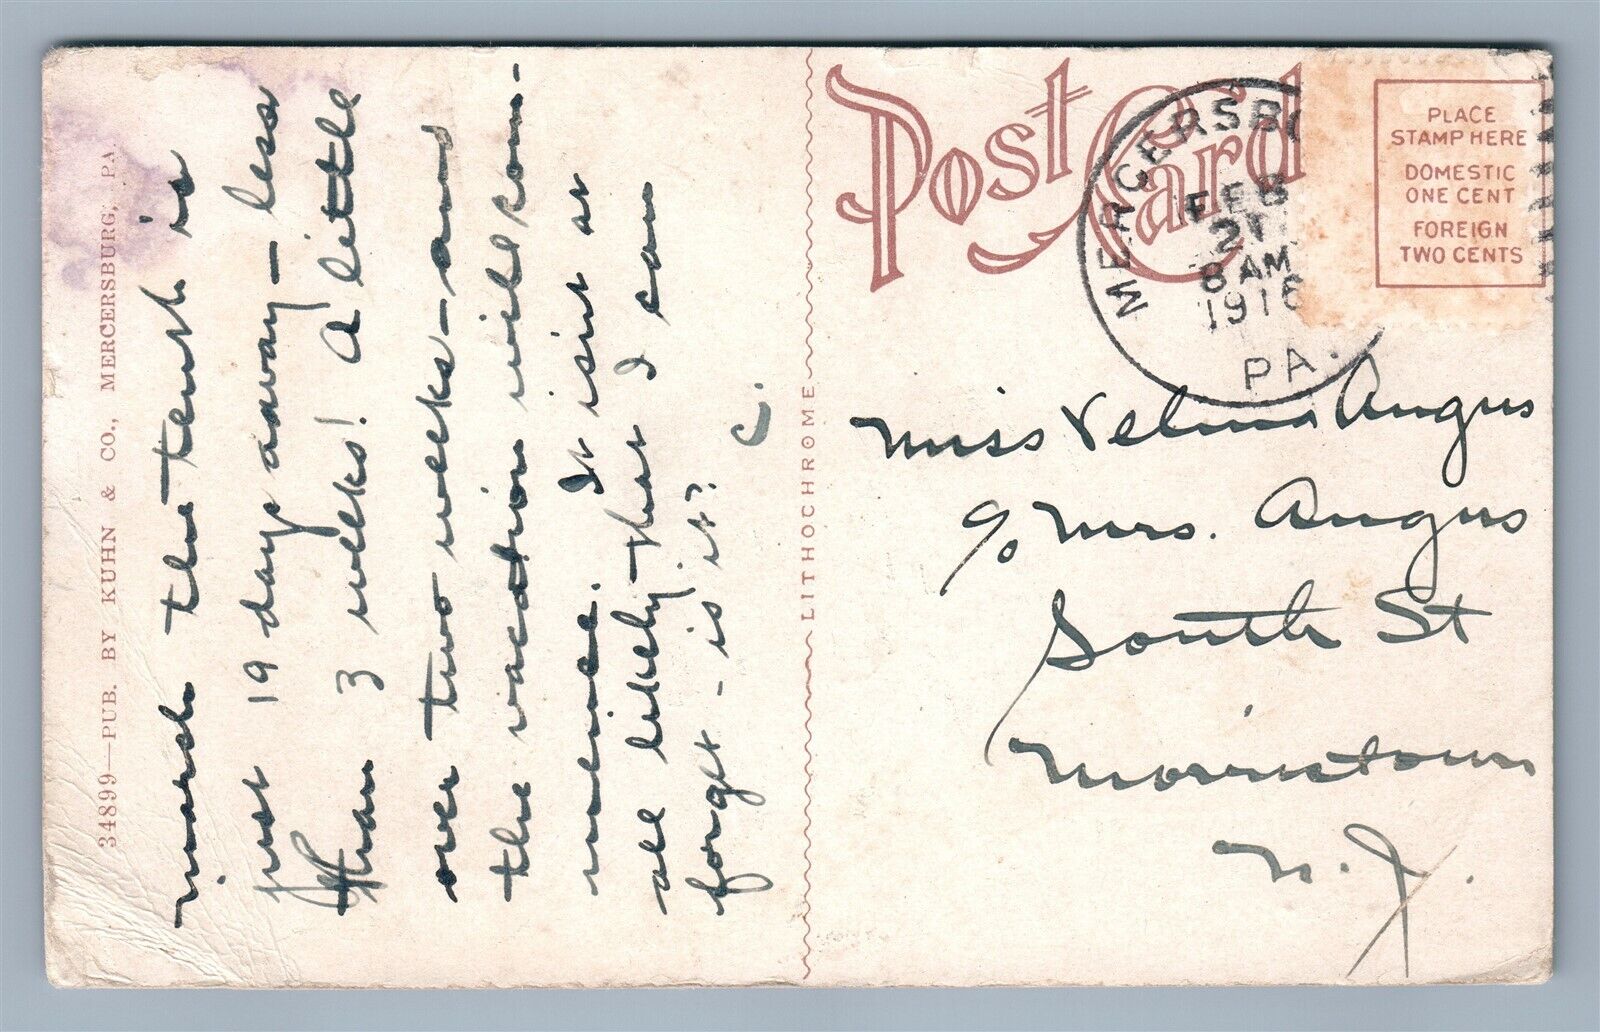 34899—PUB. BY KUHN & CO., MERCERSBURG, PA.
march the tenth is
just 19 days away – less
than 3 weeks! A little
over two weeks – and
the vacation will com-
mence. It isnt at
all likely that I can
forget – is it?
C.
LITHOCHROME
Post Card
MERCERSB
FEB
21
8 AM
1916
PA.
PLACE
STAMP HERE
DOMESTIC
ONE CENT
FOREIGN
TWO CENTS
Miss Velma Angus
c/o Mrs. Angus
South St
Morristown
N. J.